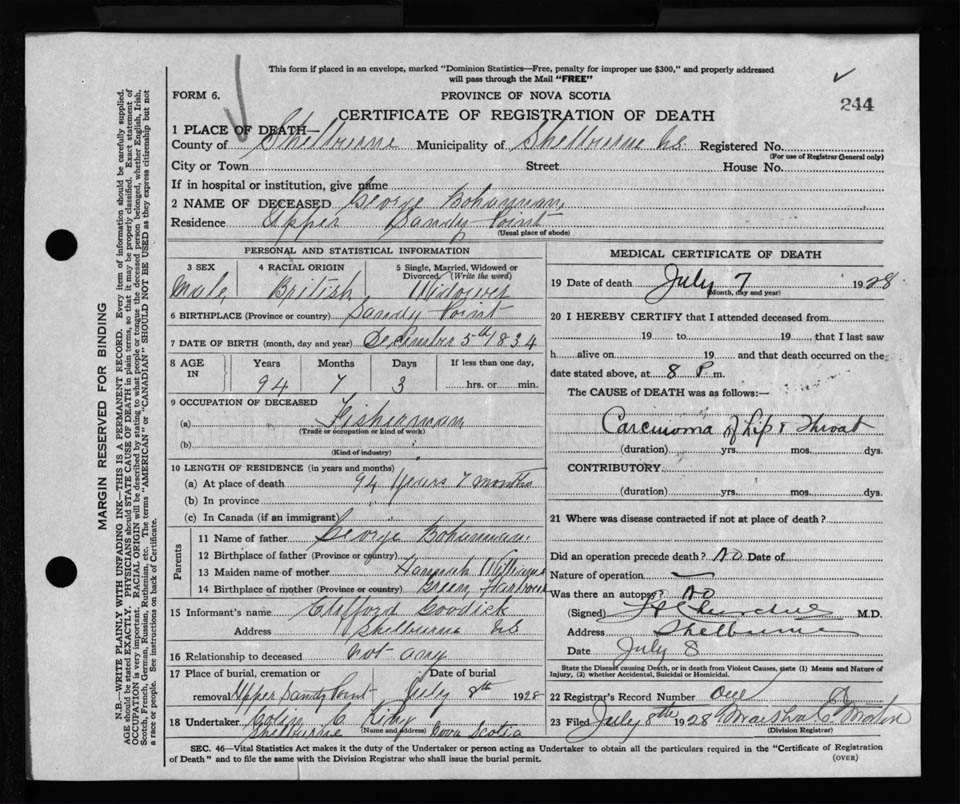 This form if placed in an envelope, marked "Dominion Statistics—Free, penalty for improper use $300," and properly addressed
will pass through the Mail "FREE"
FORM 6.
PROVINCE OF NOVA SCOTIA
244
CERTIFICATE OF REGISTRATION OF DEATH
1 PLACE OF DEATH—
County of Shelburne Municipality of Shelburne NS Registered No.
(For use of Registrar General only)
City or Town Street House No.
If in hospital or institution, give name
2 NAME OF DECEASED George Bohannan
Residence Upper Sandy Point
(Usual place of abode)
PERSONAL AND STATISTICAL INFORMATION
3 SEX 4 RACIAL ORIGIN 5 Single, Married, Widowed or Divorced (Write the word)
Male British Widower
6 BIRTHPLACE (Province or country) Sandy Point
7 DATE OF BIRTH (month, day and year) December 5th 1834
8 AGE IN Years Months Days If less than one day,
94 7 3 hrs. or min.
9 OCCUPATION OF DECEASED
(a) Fisherman
(Trade or occupation or kind of work)
(b)
(Kind of industry)
10 LENGTH OF RESIDENCE (in years and months)
(a) At place of death 94 Years 7 months
(b) In province
(c) In Canada (if an immigrant)
Parents
11 Name of father George Bohannan
12 Birthplace of father (Province or country)
13 Maiden name of mother Hannah Williams
14 Birthplace of mother (Province or country) Green Harbour
15 Informant's name Clifford Goodick
Address Shelburne NS
16 Relationship to deceased not any
17 Place of burial, cremation or removal Date of burial
Upper Sandy Point July 8th 1928
18 Undertaker Colin C. King
(Name and address)
Shelburne Nova Scotia
MEDICAL CERTIFICATE OF DEATH
19 Date of death July 7 1928
(Month, day and year)
20 I HEREBY CERTIFY that I attended deceased from
19 to 19, that I last saw
h alive on 19 and that death occurred on the
date stated above, at 8 P m.
The CAUSE of DEATH was as follows:—
Carcinoma of Lip & Throat
(duration) yrs. mos. dys.
CONTRIBUTORY.
(duration) yrs. mos. dys.
21 Where was disease contracted if not at place of death?
Did an operation precede death? No Date of
Nature of operation
Was there an autopsy? No
(Signed) M.D.
Address Shelburne
Date July 8
State the Disease causing Death, or in death from Violent Causes, state (1) Means and Nature of
Injury, (2) whether Accidental, Suicidal or Homicidal.
22 Registrar's Record Number One
23 Filed July 8th 1928
(Division Registrar)
SEC. 46—Vital Statistics Act makes it the duty of the Undertaker or person acting as Undertaker to obtain all the particulars required in the "Certificate of Registration
of Death" and to file the same with the Division Registrar who shall issue the burial permit.
(OVER)
MARGIN RESERVED FOR BINDING
N.B.—WRITE PLAINLY WITH UNFADING INK—THIS IS A PERMANENT RECORD. Every item of information should be carefully supplied.
AGE should be stated EXACTLY. PHYSICIANS should STATE CAUSE OF DEATH in plain terms, so that it may be properly classified. Exact statement of
OCCUPATION is very important. RACIAL ORIGIN will be described by stating to what people or tongue the deceased person belonged, whether English, Irish,
Scotch, French, German, Russian, Ruthenian, etc. The terms "AMERICAN" or "CANADIAN" SHOULD NOT BE USED as they express citizenship but not
a race or people. See instructions on back of Certificate.